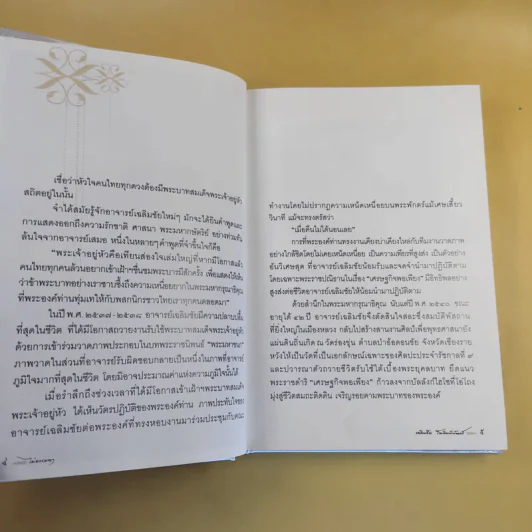 เชื่อว่าหัวใจคนไทยทุกดวงต้องมีพระบาทสมเด็จพระเจ้าอยู่หัว
สถิตอยู่ในนั้น
จำได้สมัยรู้จักอาจารย์เฉลิมชัยใหม่ๆ มักจะได้ยินคำพูดและ
การแสดงออกถึงความรักชาติ ศาสนา พระมหากษัตริย์ อย่างท่วมท้น
ล้นใจจากอาจารย์เสมอ หนึ่งในหลายๆ คำพูดที่จำขึ้นใจก็คือ
"พระเจ้าอยู่หัวคือเทียนส่องใจเล่มใหญ่ที่หากมีโอกาสแล้ว
คนไทยทุกคนล้วนอยากเข้าเฝ้าฯชื่นชมพระบารมีสักครั้ง เพื่อแสดงให้เห็น
ว่าข้าพระบาทอย่างเราซาบซึ้งถึงความเหนื่อยยากในพระมหากรุณาธิคุณ
ที่พระองค์ท่านทุ่มเทให้กับพสกนิกรชาวไทยเราทุกคนตลอดมา"
ในปี พ.ศ. ๒๕๓๗-๒๕๓๘ อาจารย์เฉลิมชัยมีความปลาบปลื้ม
ที่สุดในชีวิต ที่ได้มีโอกาสถวายงานรับใช้พระบาทสมเด็จพระเจ้าอยู่หัว
ด้วยการเข้าร่วมวาดภาพประกอบในบทพระราชนิพนธ์ "พระมหาชนก"
ภาพวาดในส่วนที่อาจารย์รับผิดชอบกลายเป็นหนึ่งในภาพที่อาจารย์
ภูมิใจมากที่สุดในชีวิต โดยมิอาจประมาณค่าแห่งความภูมิใจนั้นได้
เมื่อรำลึกถึงช่วงเวลาที่ได้มีโอกาสเข้าเฝ้าพระบาทสมเด็จ
พระเจ้าอยู่หัว ได้เห็นวัตรปฏิบัติของพระองค์ท่าน ภาพประทับใจของ
อาจารย์เฉลิมชัยต่อพระองค์ที่ทรงหอบงานมาร่วมประชุมกับคณะ
ทำงานโดยไม่ปรากฏความเหนื่อยบนพระพักตร์แม้เศษเสี้ยว
วินาที แม้จะทรงตรัสว่า
"เมื่อคืนไม่ได้นอนเลย"
การที่พระองค์ท่านทรงงานเคียงบ่าเคียงไหล่กับทีมงานวาดภาพ
อย่างใกล้ชิดโดยไม่เคยเหน็ดเหนื่อย เป็นความเพียรที่สูงส่ง เป็นตัวอย่าง
อันวิเศษสุด ที่อาจารย์เฉลิมชัยน้อมรับและจดจำนำมาปฏิบัติตาม
โดยเฉพาะพระราชปณิธานในเรื่อง "เศรษฐกิจพอเพียง" มีอิทธิพลอย่าง
สูงส่งต่อชีวิตอาจารย์เฉลิมชัยให้น้อมนำมาปฏิบัติตาม
ด้วยสำนึกในพระมหากรุณาธิคุณ นับแต่ปี พ.ศ. ๒๕๔๐ ขณะ
อายุได้ ๔๒ ปี อาจารย์เฉลิมชัยจึงตัดสินใจสละซึ่งสมบัติพัสถาน
ที่ยิ่งใหญ่ในเมืองหลวง กลับไปสร้างสถานงานศิลป์เพื่อพุทธศาสนายัง
แผ่นดินถิ่นเกิด ณ วัดร่องขุ่น ตำบลป่าอ้อดอนชัย จังหวัดเชียงราย
หวังให้เป็นวัดที่เป็นเอกลักษณ์เฉพาะของศิลปะประจำรัชกาลที่ ๙
และปวารณาตัวถวายชีวิตรับใช้ใต้เบื้องพระยุคลบาท ยึดแนว
พระราชดำริ "เศรษฐกิจพอเพียง" ก้าวลงจากบัลลังก์ไฮโซไฮโอโถง
มุ่งสู่ชีวิตสมถะติดดิน เจริญรอยตามพระบาทของพระองค์